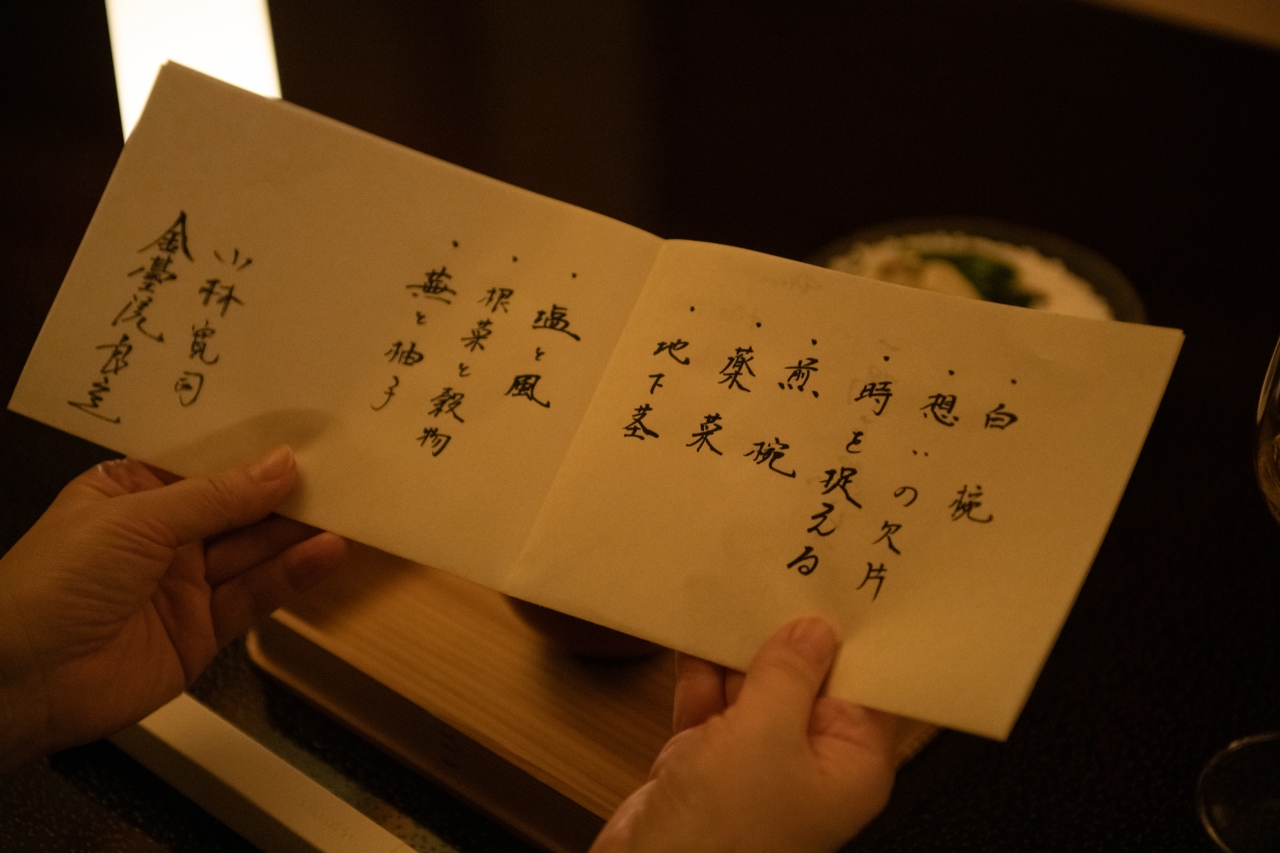 ・白 椀
・想いの欠片
・時を捉える
・煎 椀
・薬 菜
・地下茎
・塩と風
・根菜と穀物
・蕪と柚子
小林寛司